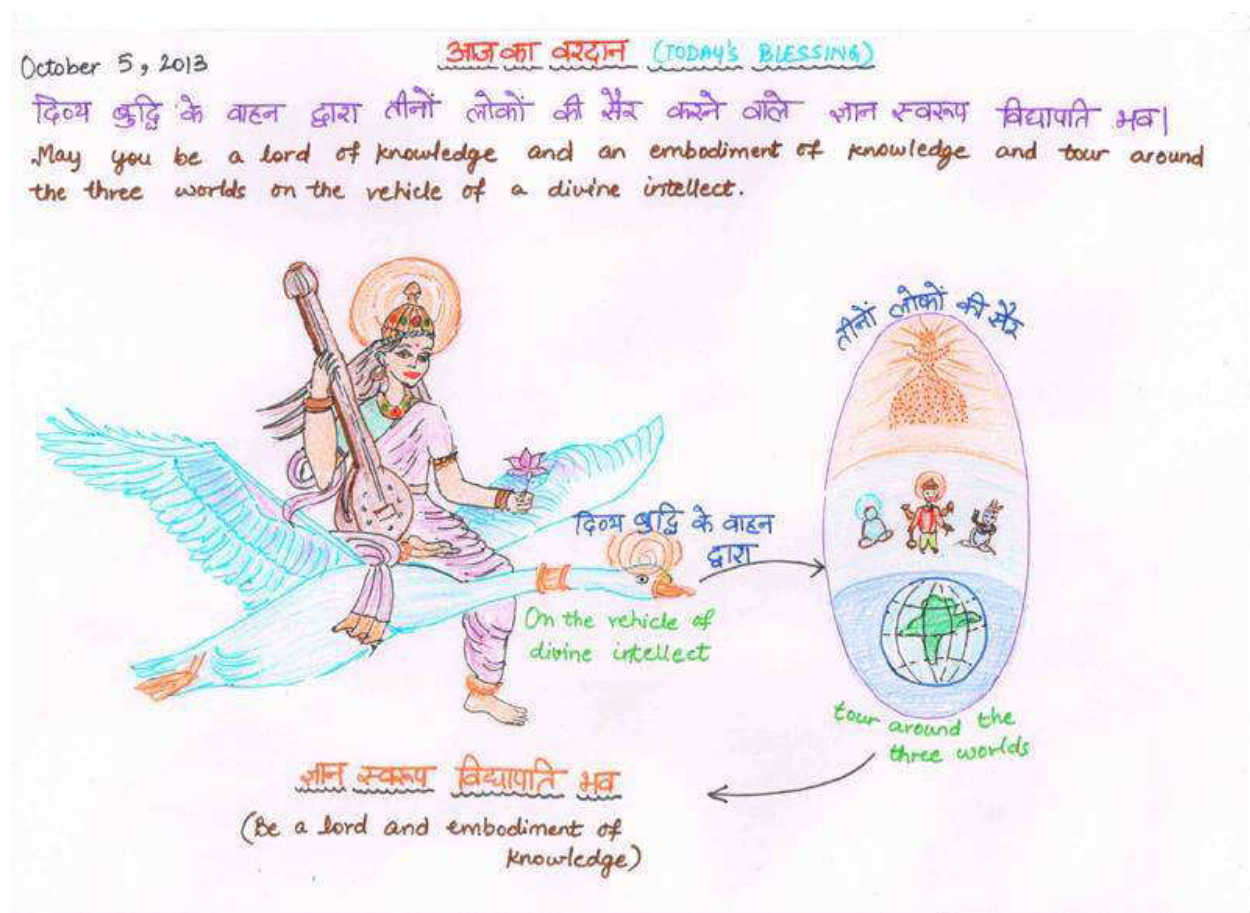 October 5, 2013
आज का वरदान (TODAY'S BLESSING)
दिव्य बुद्धि के वाहन द्वारा तीनों लोकों की सैर करने वाले ज्ञान स्वरूप विद्यापति भव।
May you be a lord of knowledge and an embodiment of knowledge and tour around
the three worlds on the vehicle of a divine intellect.
तीनों लोकों की सैर
दिव्य बुद्धि के वाहन
द्वारा
On the vehicle of
divine intellect
tour around the
three worlds
ज्ञान स्वरूप विद्यापति भव
(Be a lord and embodiment of
knowledge)